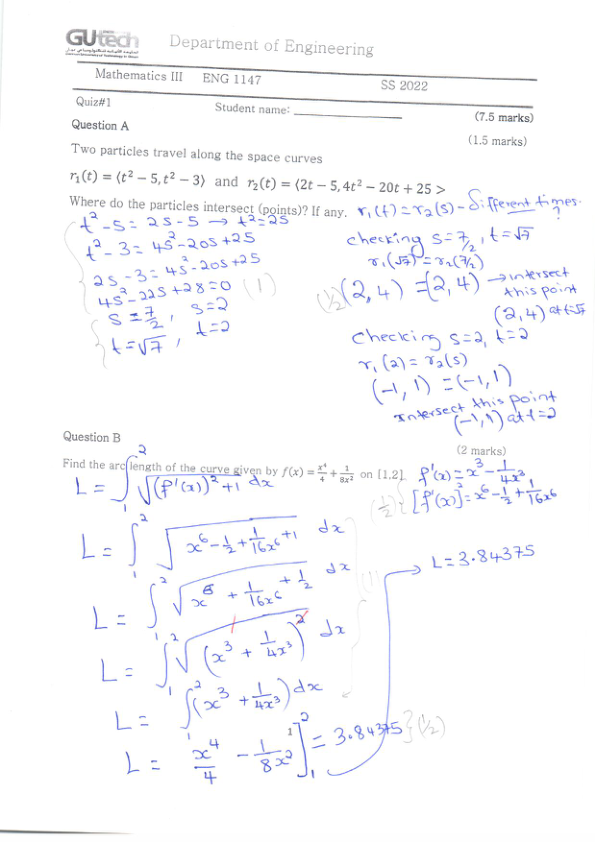 GUtech
Department of Engineering
Mathematics III ENG 1147 SS 2022
Quiz#1 Student name: (7.5 marks)
Question A (1.5 marks)
Two particles travel along the space curves
r₁(t) = ⟨t² − 5, t² − 3⟩ and r₂(t) = ⟨2t − 5, 4t² − 20t + 25 >
Where do the particles intersect (points)? If any. r₁(t) = r₂(s) - different times.
t² - 5 = 2s - 5 → t² = 2s
t² - 3 = 4s² - 20s + 25
2s - 3 = 4s² - 20s + 25
4s² - 22s + 28 = 0 (1)
s = 7/2, s = 2
t = √7, t = 2
checking s = 7/2, t = √7
r₁(√7) = r₂(7/2)
(1/2) (2, 4) = (2, 4) → intersect
this point
(2, 4) at t=√7
checking s = 2, t = 2
r₁(2) = r₂(s)
(-1, 1) = (-1, 1)
intersect this point
(-1, 1) at t = 2
Question B (2 marks)
Find the arc length of the curve given by f(x) = x⁴/4 + 1/8x² on [1,2]
f'(x) = x³ - 1/4x³
(1/2) [f'(x)]² = x⁶ - 1/2 + 1/16x⁶
L = ∫₁² √(f'(x))² + 1 dx
L = ∫₁² √x⁶ - 1/2 + 1/16x⁶ + 1 dx
L = ∫₁² √x⁶ + 1/16x⁶ + 1/2 dx (1)
L = ∫₁² √(x³ + 1/4x³)² dx
L = ∫₁² (x³ + 1/4x³) dx
L = x⁴/4 - 1/8x² ]₁² = 3.84375 (1/2)
→ L = 3.84375